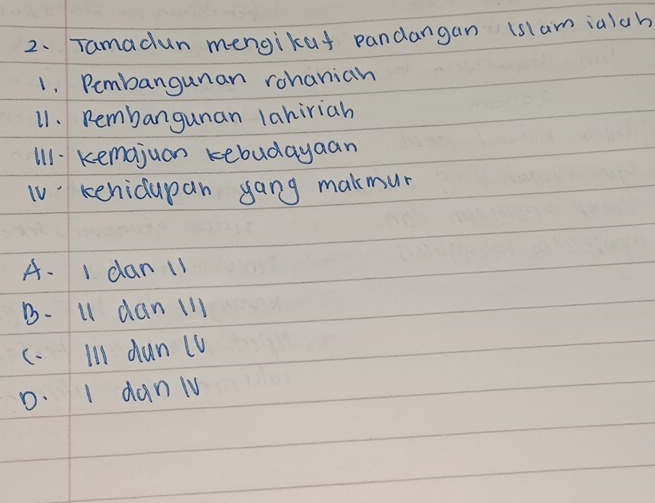 2. Tamadun mengikut Pandangan Islam ialah
I. Pembangunan rohaniah
II. Pembangunan lahiriah
III. kemajuan kebudayaan
IV. kehidupan yang makmur
A. I dan II
B. II dan III
C. III dan IV
D. I dan IV